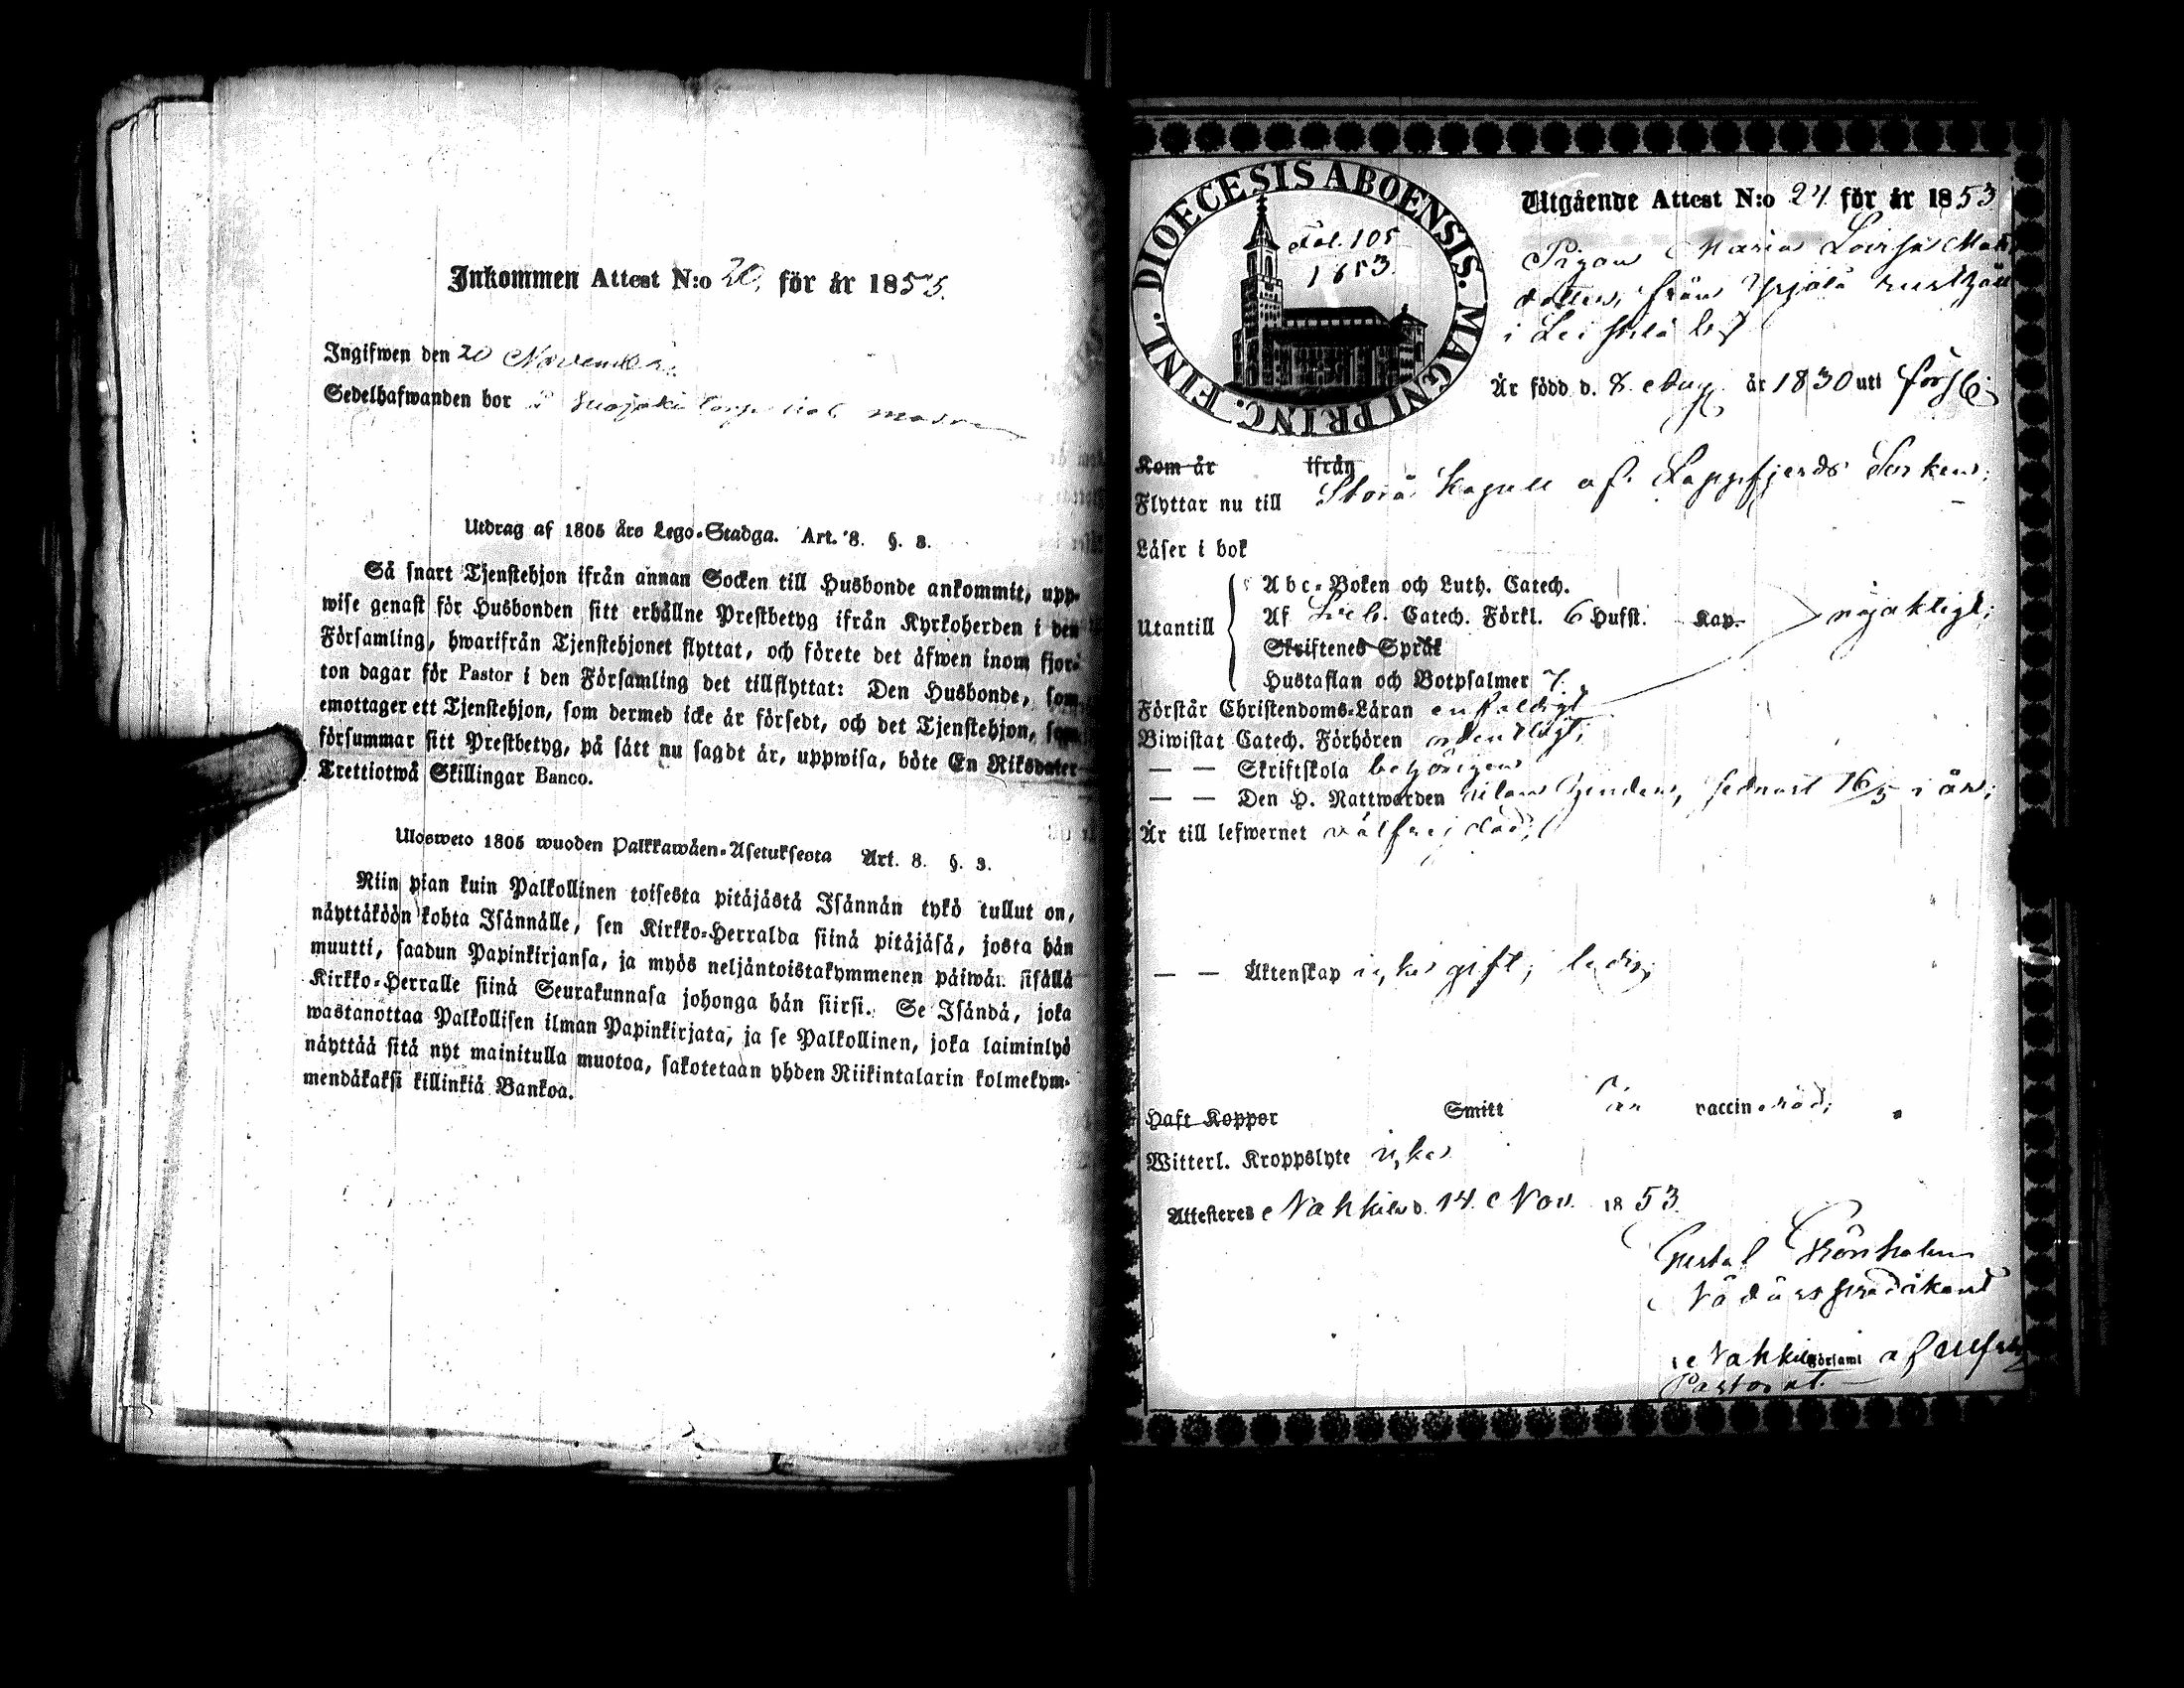 Inkommen Attest N:o 20. för år 1853.
Ingifwen den 20 November
Sedelhafwanden bor
Utdrag af 1805 års Lego-Stadga. Art. 8. §. 3.
Så snart Tjenstehjon ifrån annan Socken till Husbonde ankommit, upp-
wise genast för Husbonden sitt erhållne Prestbetyg ifrån Kyrkoherden i den
Församling, hwarifrån Tjenstehjonet flyttat, och förete det äfwen inom fjor-
ton dagar för Pastor i den Församling det tillflyttat: Den Husbonde, som
emottager ett Tjenstehjon, som dermed icke är försedt, och det Tjenstehjon, som
försummar sitt Prestbetyg, på sätt nu sagdt är, uppwisa, böte En Riksdaler
Trettiotwå Skillingar Banco.
Ulosweto 1805 wuoden Palkkawäen-Asetuksesta Art. 8. §. 3.
Niin pian kuin Palkollinen toisesta pitäjästä Isännän tykö tullut on,
näyttäköön kohta Isännälle, sen Kirkko-Herralda siinä pitäjäsä, josta hän
muutti, saadun Papinkirjansa, ja myös neljäntoistakymmenen päiwän sisällä
Kirkko-Herralle siinä Seurakunnasa johonga hän siirsi. Se Isändä, joka
wastanottaa Palkollisen ilman Papinkirjata, ja se Palkollinen, joka laiminlyö
näyttää sitä nyt mainitulla muotoa, sakotetaan yhden Riikintalarin kolmekym-
mendäkaksi killinkiä Bankoa.
DIOECESIS ABOENSIS. MAGNI PRINC. FINL.
Fol. 105
1853.
Utgående Attest N:o 24 för år 1853
Pigan Maria Lovisa
dotter, från rusthåll
i Leistilä by
Är född d. 8 Aug. år 1830 uti förs.
Kom år ifrån
Flyttar nu till Storå Kapell af Lappfjerds Socken;
Läser i bok
Utantill
Abc-Boken och Luth. Catech.
Af Sveb. Catech. Förkl. 6 Hufst. Kap. nöjaktigt;
Skriftenes Språk
Hustaflan och Botpsalmer 7.
Förstår Christendoms-Läran enfaldigt
Biwistat Catech. Förhören ordentligt;
— — Skriftskola behörigen
— — Den H. Nattwarden sednast 16/5 i år;
Är till lefwernet välfrejdad;
— — Äktenskap icke gift, ledig
Haft Koppor Smitt är vaccinerad;
Witterl. Kroppslyte icke
Attesteres Nakkila d. 14. Nov. 1853.
Gustaf Grönholm
Nådårspredikant
i Nakkila Församl af Ulfsby
Pastorat.